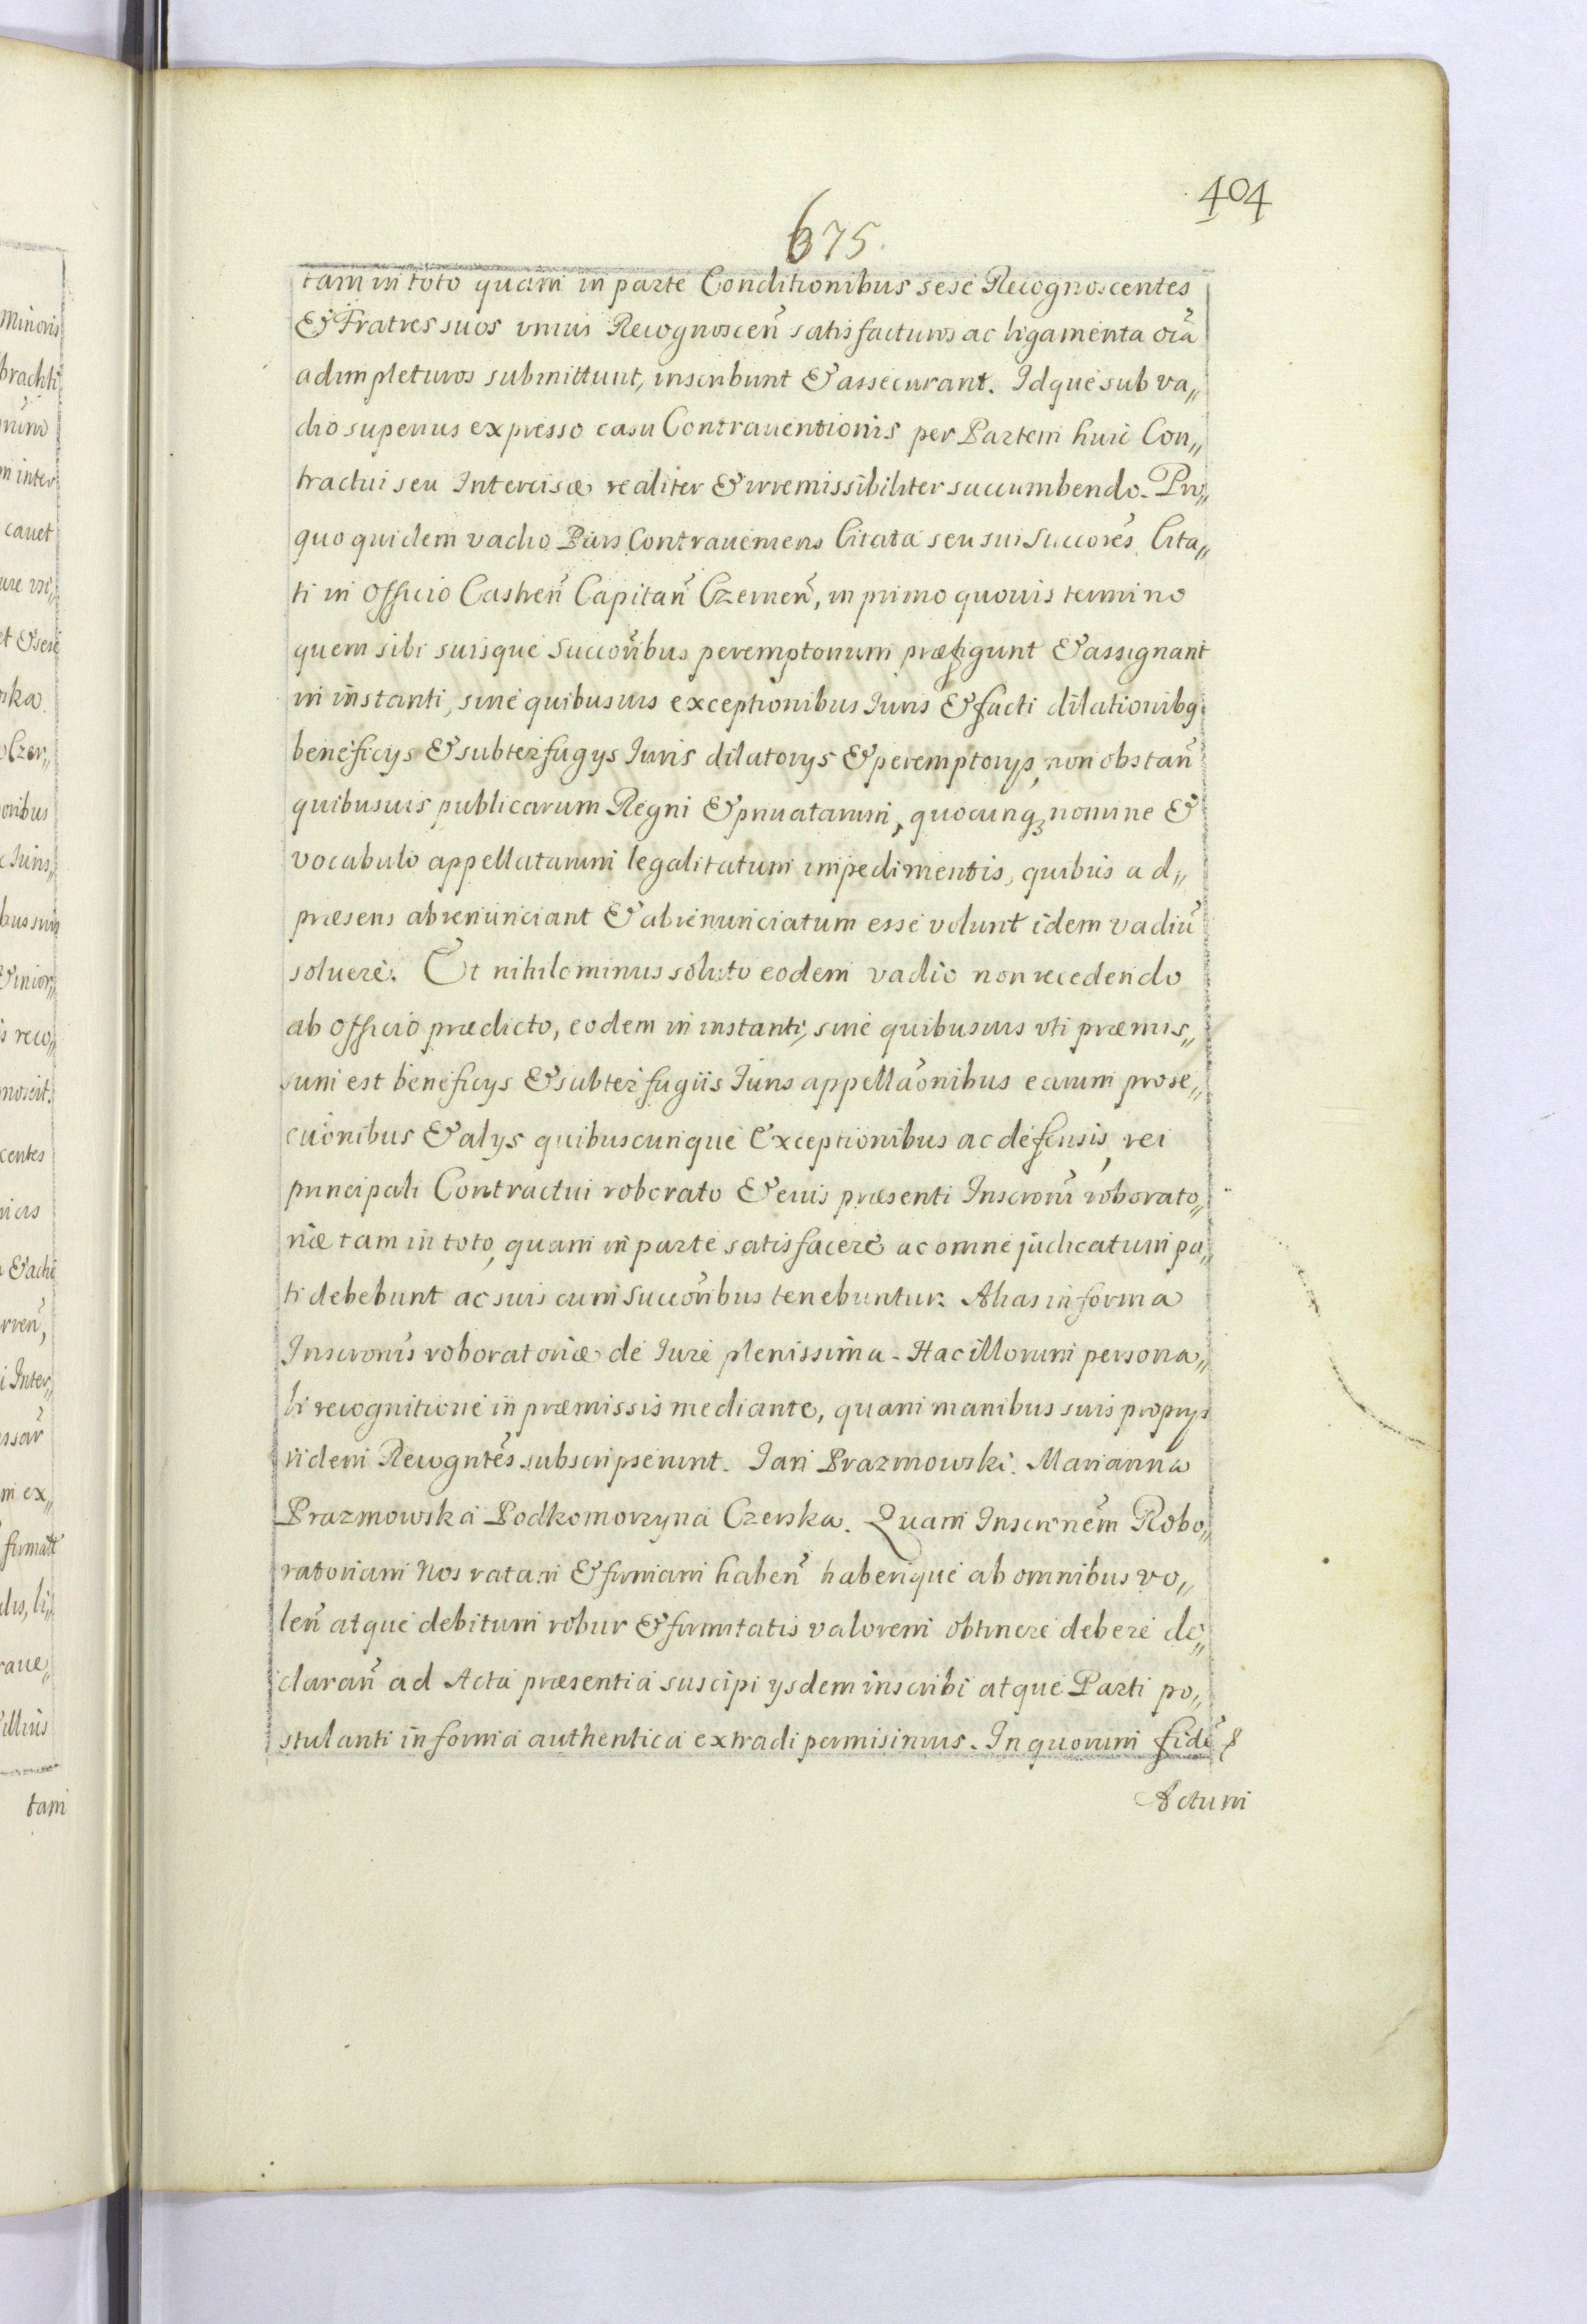 404
675.
tam in toto quam in parte Conditionibus sese Recognoscentes
& Fratres suos vnius Recognoscen̄ satisfacturos ac ligamenta oīa
adimpleturos submittunt, inscribunt & assecurant. Idque sub va„
dio superius expresso casu Contrauentionis per Partem huic Con„
tractui seu Intercisæ realiter & irremissibiliter succumbendo. Pro„
quo quidem vadio Pars Contraueniens Citata seu sui Succores̄ Cita„
ti in Officio Castren̄ Capitan̄ Czernen̄, in primo quouis termino
quem sibi suisque Succorībus peremptorium præfigunt & assignant
in instanti, sine quibusuis exceptionibus Iuris & facti dilationibq
beneficys & subterfugys Iuris dilatorys & peremptorys, non obstan̄
quibusuis publicarum Regni & priuatarum, quocunq nomine &
vocabulo appellatarum legalitatum impedimentis, quibus ad„
præsens abrenunciant & abrenunciatum esse volunt idem vadiū
soluere. Et nihilominus soluto eodem vadio non recedendo
ab Officio prædicto, eodem in instanti, sine quibusuis vti præmis„
sum est beneficys & subterfugiis Iuris appellāonibus earum prose„
cuīonibus & alys quibuscunque Exceptionibus ac defensis, rei
principali Contractui roborato & eius præsenti Inscrōni roborato„
riæ tam in toto, quam in parte satisfacere ac omne judicatum pa„
ti debebunt ac suis cum Succorībus tenebuntur. Alias in forma
Inscronīs roboratoriæ de Iure plenissima. Hac illorum persona„
li recognitione in præmissis mediante, quam manibus suis proprys
iidem Recognteś subscripserunt. Jan Prazmowski. Marianna
Prazmowska Podkomorzyna Czerska. Quam Inscrōnem Robo„
ratoriam Nos ratam & firmam haben̄ haberique ab omnibus vo„
len̄ atque debitum robur & firmitatis valorem obtinere debere de„
claran̄ ad Acta præsentia suscipi ysdem inscribi atque Parti po„
stulanti in forma authentica extradi permisimus. In quorum fidē
Actum